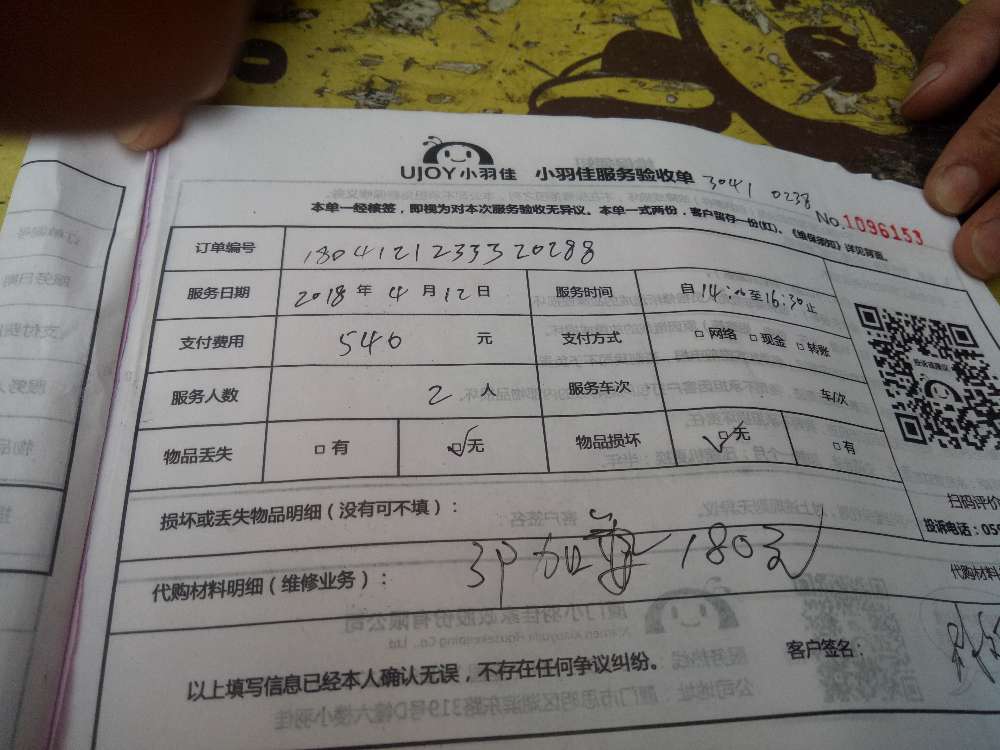 UJOY小羽佳 小羽佳服务验收单 3041 0238
No.1096153
本单一经核签,即视为对本次服务验收无异议。本单一式两份,客户留存一份(红)。《维保须知》详见背面。
订单编号 1804121233320288
服务日期 2018年4月12日 服务时间 自14: 至16:30止
支付费用 540元 支付方式 □网络 □现金 □转账
服务人数 2人 服务车次 车/次
物品丢失 □有 ☑无 物品损坏 ☑无 □有
扫码评价
损坏或丢失物品明细(没有可不填):
投诉电话:059
代购材料明细(维修业务): 3P加 180元
代购材料
客户签名:
以上填写信息已经本人确认无误,不存在任何争议纠纷。